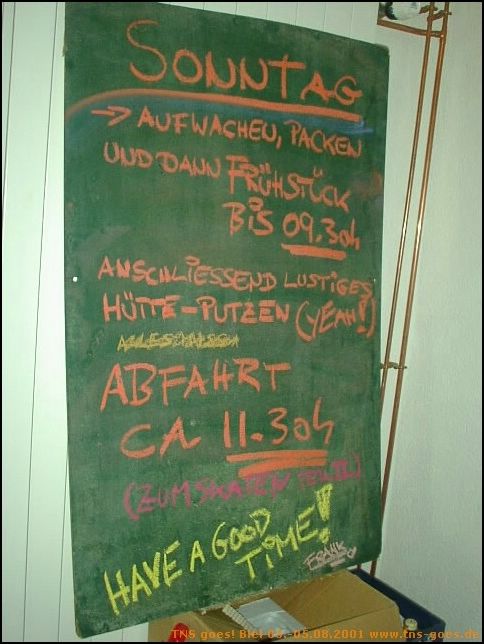 SONNTAG
→ AUFWACHEN, PACKEN
UND DANN FRÜHSTÜCK
BIS 09.30h
ANSCHLIESSEND LUSTIGES
HÜTTE-PUTZEN (YEAH!)
ABFAHRT
CA 11.30h
(ZUM SKATEN TEIL II)
HAVE A GOOD
TIME!
FRANK
TNS goes! Biel 03.-05.08.2001 www.tns-goes.de